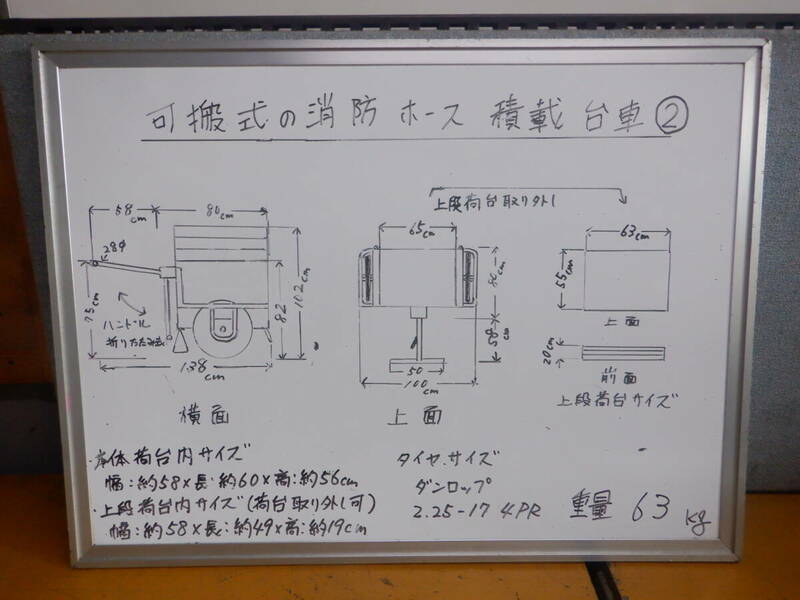 可搬式の消防ホース 積載台車②
上段荷台取り外し
58cm
80cm
28φ
75cm
ハンドル
折りたたみ式
82
102cm
138cm
横面
65cm
80cm
58cm
50
100cm
上面
63cm
55cm
上面
20cm
前面
上段荷台サイズ
・本体荷台内サイズ
幅:約58×長:約60×高:約56cm
・上段荷台内サイズ(荷台取り外し可)
幅:約58×長:約49×高:約19cm
タイヤ.サイズ
ダンロップ
2.25-17 4PR
重量 63 kg